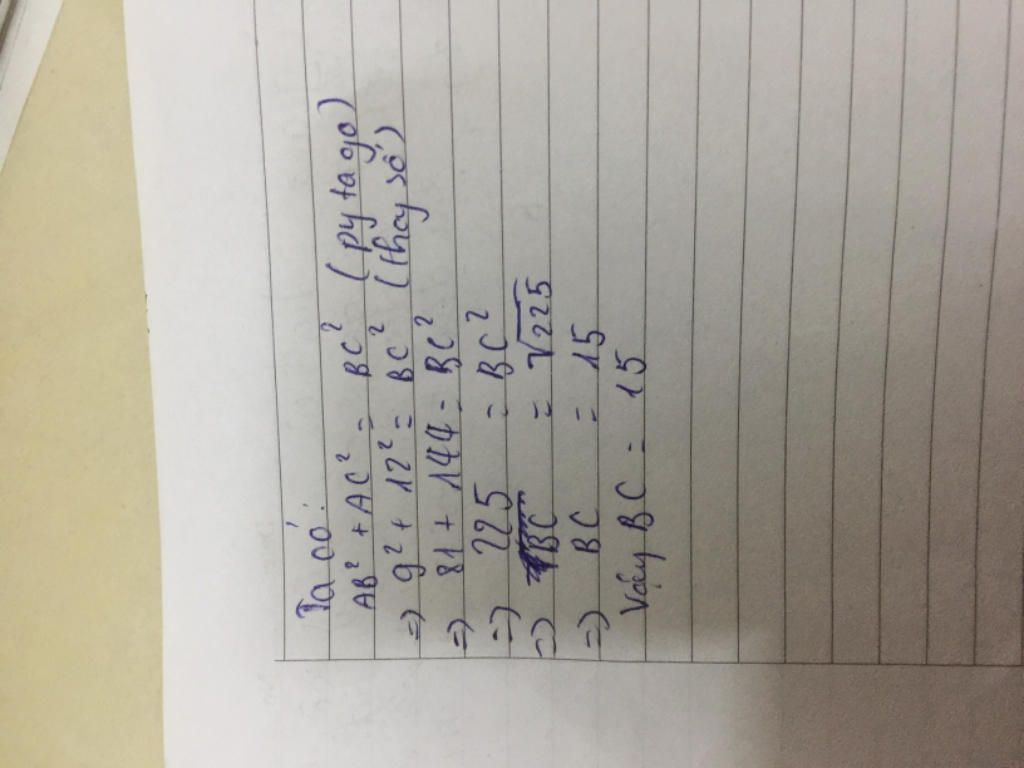 Ta có:
AB² + AC² = BC² (pytago)
=) 9² + 12² = BC² (thay số)
=) 81 + 144 = BC²
=) 225 = BC²
=) BC = √225
=) BC = 15
Vậy BC = 15